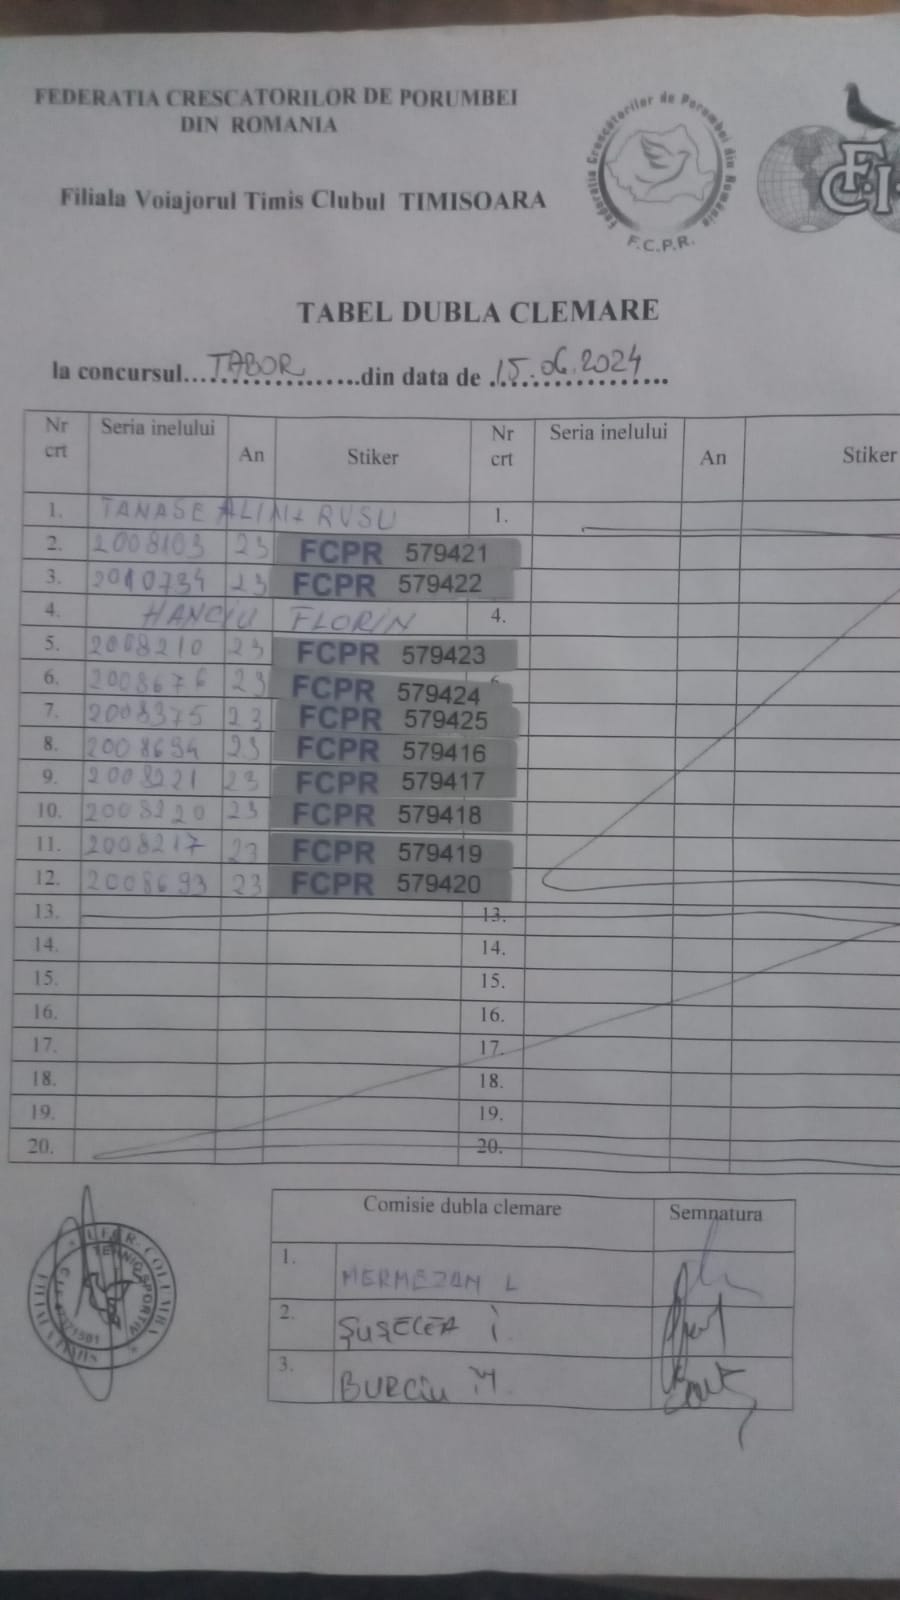 FEDERATIA CRESCATORILOR DE PORUMBEI
DIN ROMANIA
Filiala Voiajorul Timis Clubul TIMISOARA
Federatia Crescatorilor de Porumbei din România
F.C.P.R.
F.C.I.
TABEL DUBLA CLEMARE
la concursul...TABOR...din data de 15.06.2024
Nr crt Seria inelului An Stiker Nr crt Seria inelului An Stiker
1. TANASE ALIN+RUSU 1.
2. 2008103 23 FCPR 579421
3. 2010734 23 FCPR 579422
4. HANCIU FLORIN 4.
5. 2008210 23 FCPR 579423
6. 2008676 23 FCPR 579424 6
7. 2008375 23 FCPR 579425
8. 2008694 23 FCPR 579416
9. 2008221 23 FCPR 579417
10. 2008220 23 FCPR 579418
11. 2008217 23 FCPR 579419
12. 2008693 23 FCPR 579420
13. 13.
14. 14.
15. 15.
16. 16.
17. 17.
18. 18.
19. 19.
20. 20.
Comisie dubla clemare Semnatura
1. MERMEZAN L
2. ŞUŞELEA I.
3. BURCIU M.
TEHNIC SPORTIV